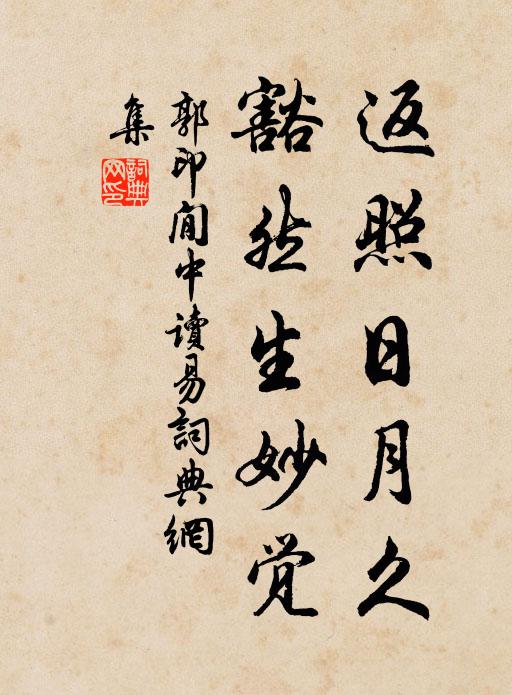 返照日月久
豁然生妙觉
郭印闲中讀易詞典網
集
詞典
网印